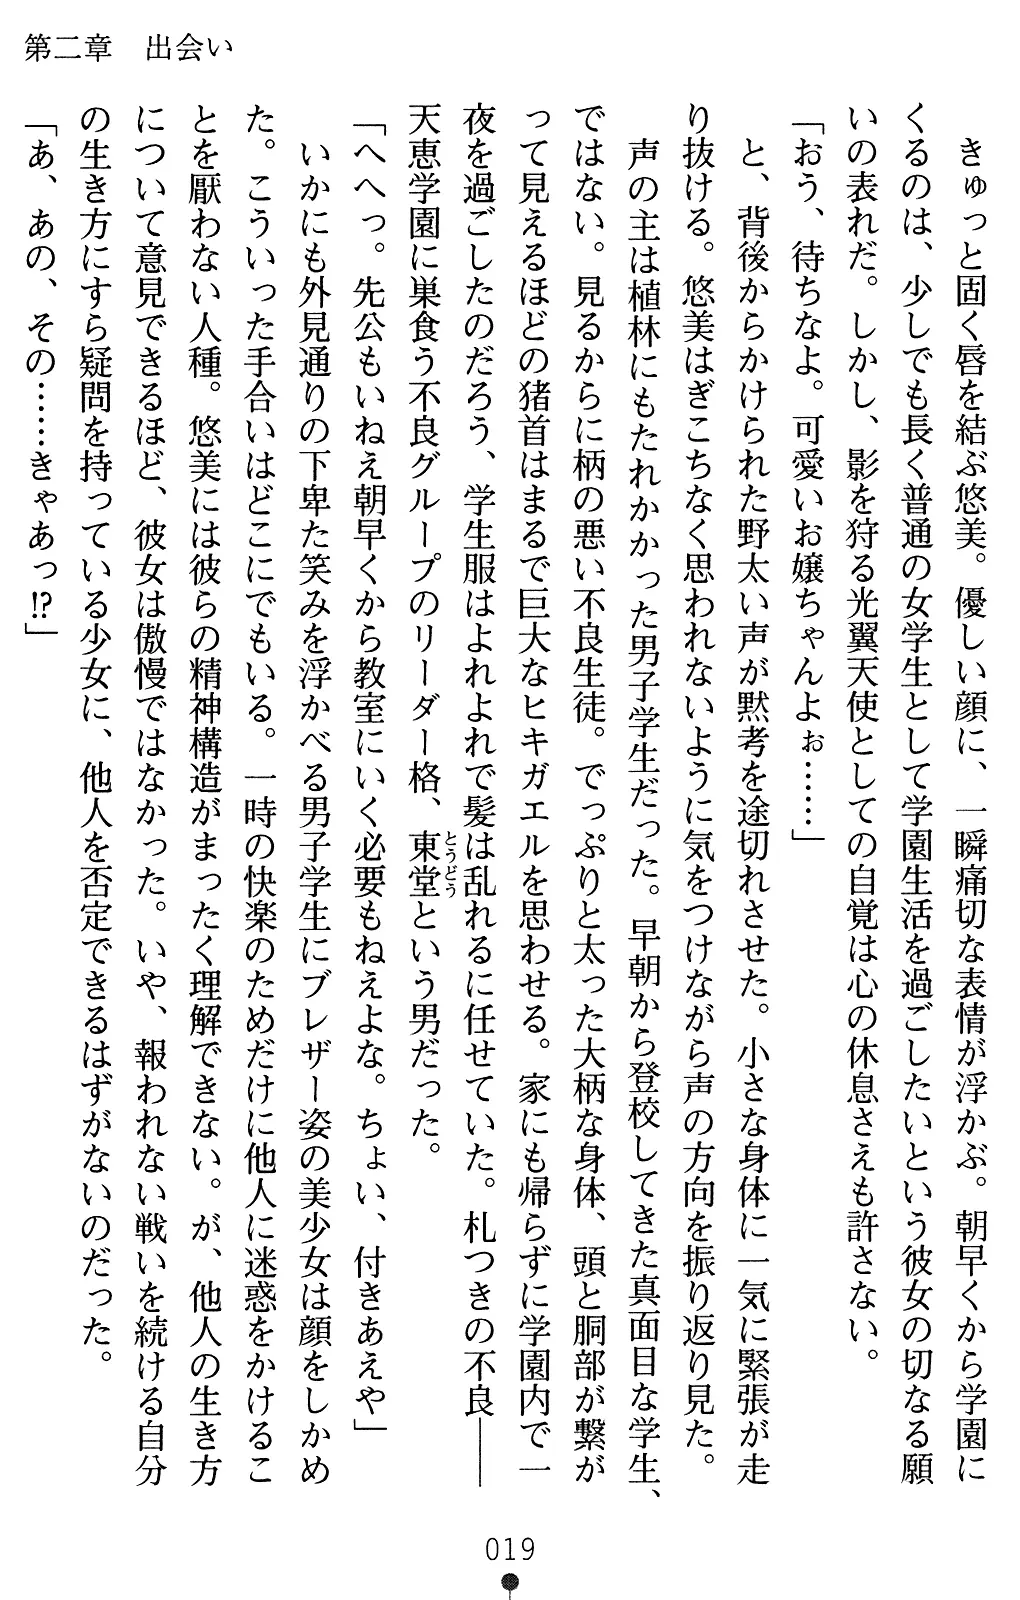 第二章　出会い
　きゅっと固く唇を結ぶ悠美。優しい顔に、一瞬痛切な表情が浮かぶ。朝早くから学園に
くるのは、少しでも長く普通の女学生として学園生活を過ごしたいという彼女の切なる願
いの表れだ。しかし、影を狩る光翼天使としての自覚は心の休息さえも許さない。
「おう、待ちなよ。可愛いお嬢ちゃんよぉ……」
　と、背後からかけられた野太い声が黙考を途切れさせた。小さな身体に一気に緊張が走
り抜ける。悠美はぎこちなく思われないように気をつけながら声の方向を振り返り見た。
　声の主は植林にもたれかかった男子学生だった。早朝から登校してきた真面目な学生、
ではない。見るからに柄の悪い不良生徒。でっぷりと太った大柄な身体、頭と胴部が繋が
って見えるほどの猪首はまるで巨大なヒキガエルを思わせる。家にも帰らずに学園内で一
夜を過ごしたのだろう、学生服はよれよれで髪は乱れるに任せていた。札つきの不良――
天恵学園に巣食う不良グループのリーダー格、東堂という男だった。
とうどう
「へへっ。先公もいねえ朝早くから教室にいく必要もねえよな。ちょい、付きあえや」
　いかにも外見通りの下卑た笑みを浮かべる男子学生にブレザー姿の美少女は顔をしかめ
た。こういった手合いはどこにでもいる。一時の快楽のためだけに他人に迷惑をかけるこ
とを厭わない人種。悠美には彼らの精神構造がまったく理解できない。が、他人の生き方
について意見できるほど、彼女は傲慢ではなかった。いや、報われない戦いを続ける自分
の生き方にすら疑問を持っている少女に、他人を否定できるはずがないのだった。
「あ、あの、その……きゃあっ!?」
019